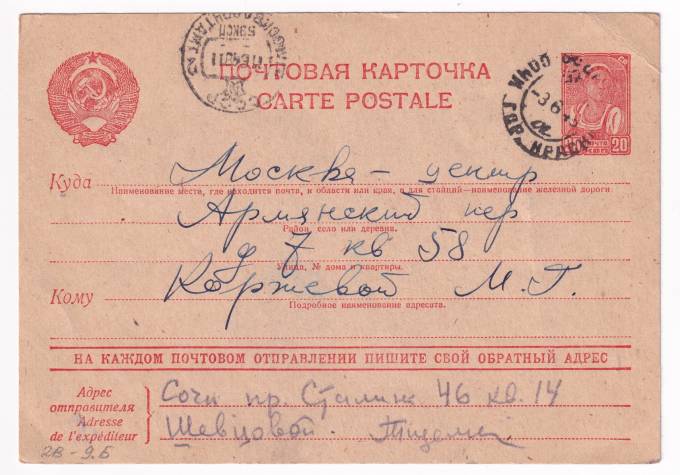 ПОЧТОВАЯ КАРТОЧКА
CARTE POSTALE
20
Куда Москва - центр
Наименование места, где находится почта, и области или края, а для станций—наименование железной дороги
Армянский пер
Район, село или деревня.
д 7 кв 58
Улица, № дома и квартиры.
Кому Коржевой М. Г.
Подробное наименование адресата.
НА КАЖДОМ ПОЧТОВОМ ОТПРАВЛЕНИИ ПИШИТЕ СВОЙ ОБРАТНЫЙ АДРЕС
Адрес отправителя
Adresse de l'expéditeur
Сочи пр. Сталина 46 кв. 14
Шевцовой.
2В-9.Б